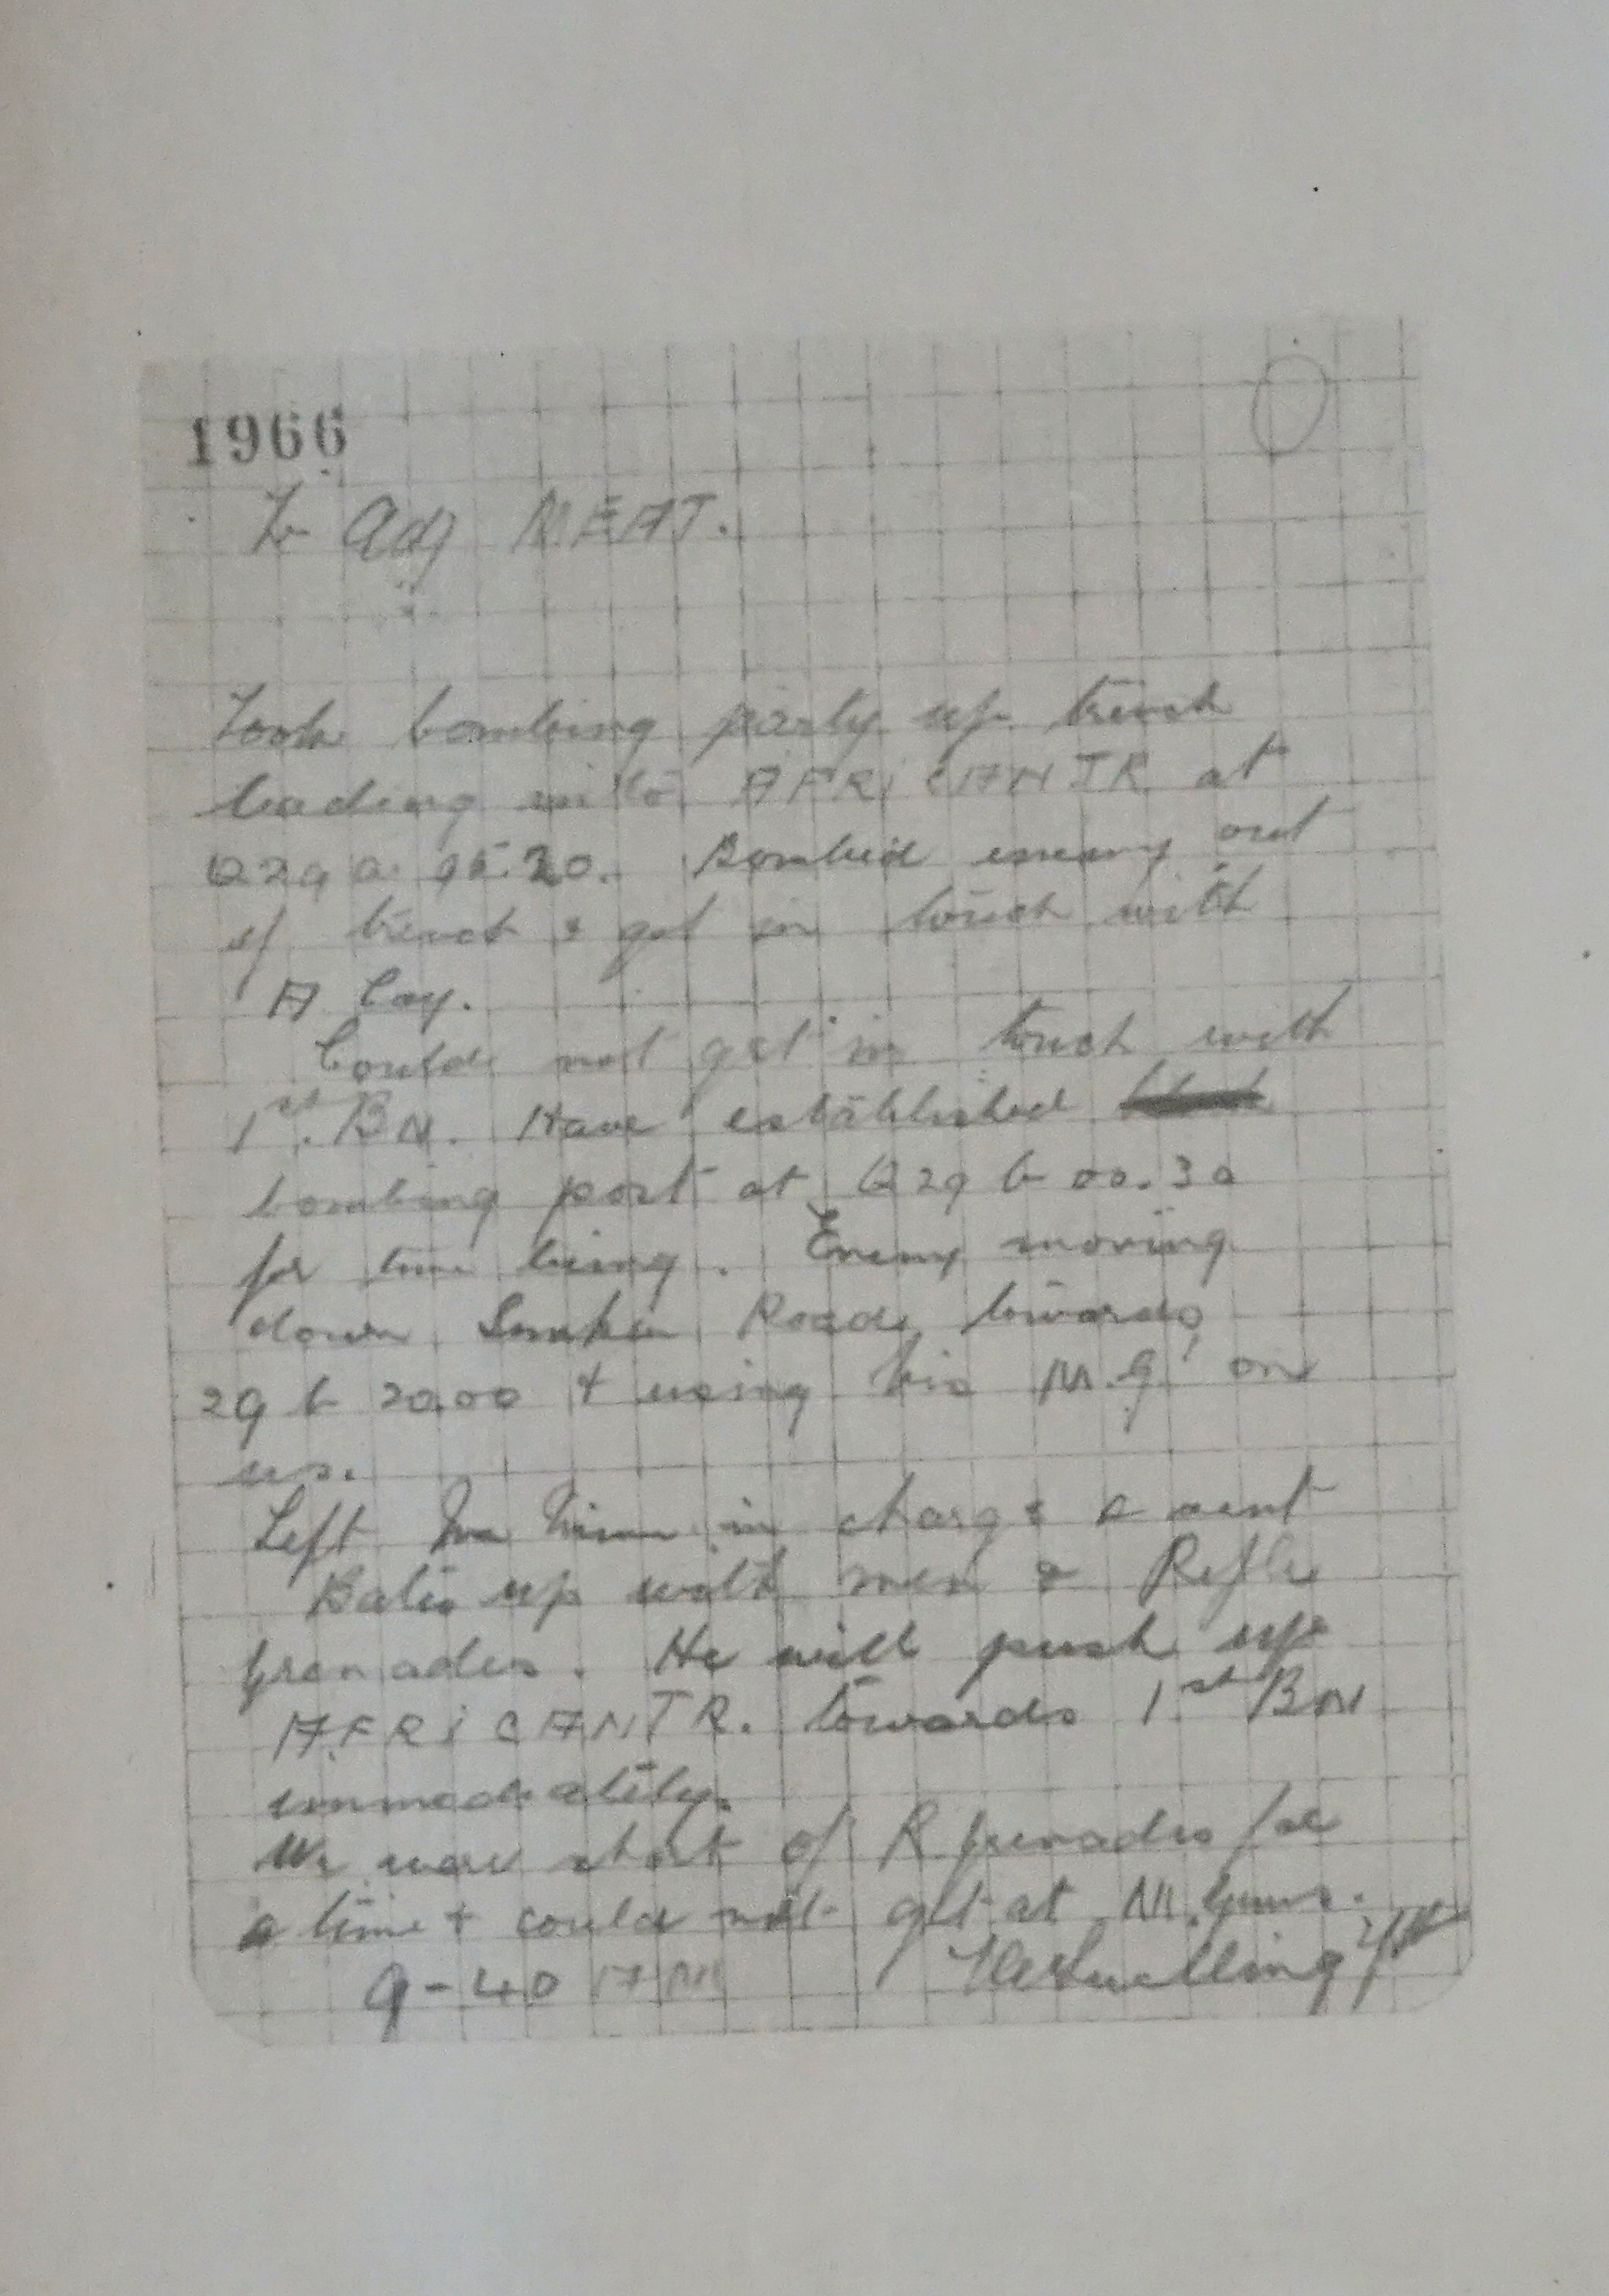 1966
To Adj MEAT.
Took bombing party up trench
leading into AFRICAN TR at
Q29 a 95.20. Bombed enemy out
of trench & got in touch with
A Coy.
Could not get in touch with
1st. BN. Have established
bombing post at Q29 b 00.30
for time being. Enemy moving
down Sunken Road, towards
29 b 20.00 + using his M.G. on
us.
Left in charge & sent
Bates up with men & Rifle
Grenades. He will push up
AFRICAN TR. towards 1st BN
immediately.
We were short of R Grenades for
a time + could not get at M. Guns.
9-40 AM